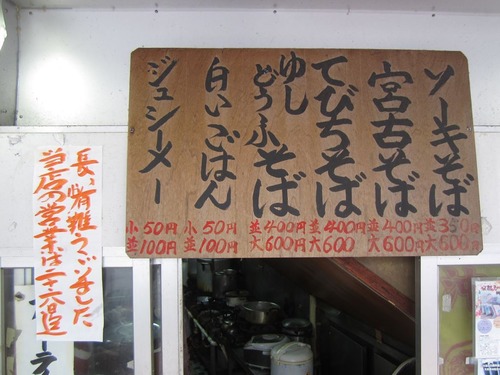 ソーキそば
並350円
大600円
宮古そば
並400円
大600円
てびちそば
並400円
大600
ゆし
どうふそば
並400円
大600円
白いごはん
小50円
並100円
ジューシーメー
小50円
並100円
長い間有難うございました
当店の営業は二十六日迄